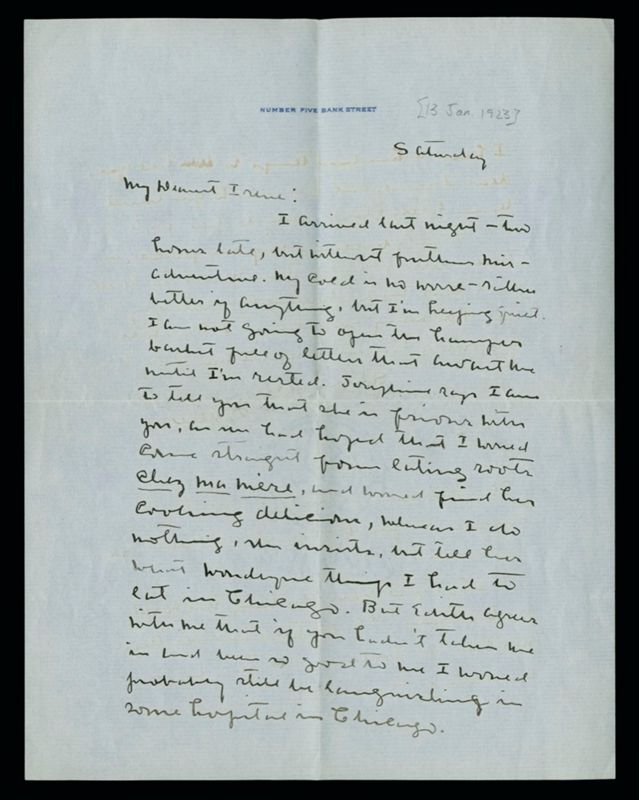 NUMBER FIVE BANK STREET
[13 Jan. 1923]
Saturday
My Dearest Irene:
I arrived last night – two
hours late, but without further mis-
adventure. My cold is no worse – rather
better if anything, but I'm keeping quiet.
I am not going to open the hamper
basket full of letters that await me
until I'm rested. Josephine says I am
to tell you that she is furious with
you, as she had hoped that I would
come straight from eating roots
chez ma mère, and would find her
cooking delicious, whereas I do
nothing, she insists, but tell her
what wonderful things I had to
eat in Chicago. But Edith agrees
with me that if you hadn't taken me
in and been so good to me I would
probably still be languishing in
some hospital in Chicago.